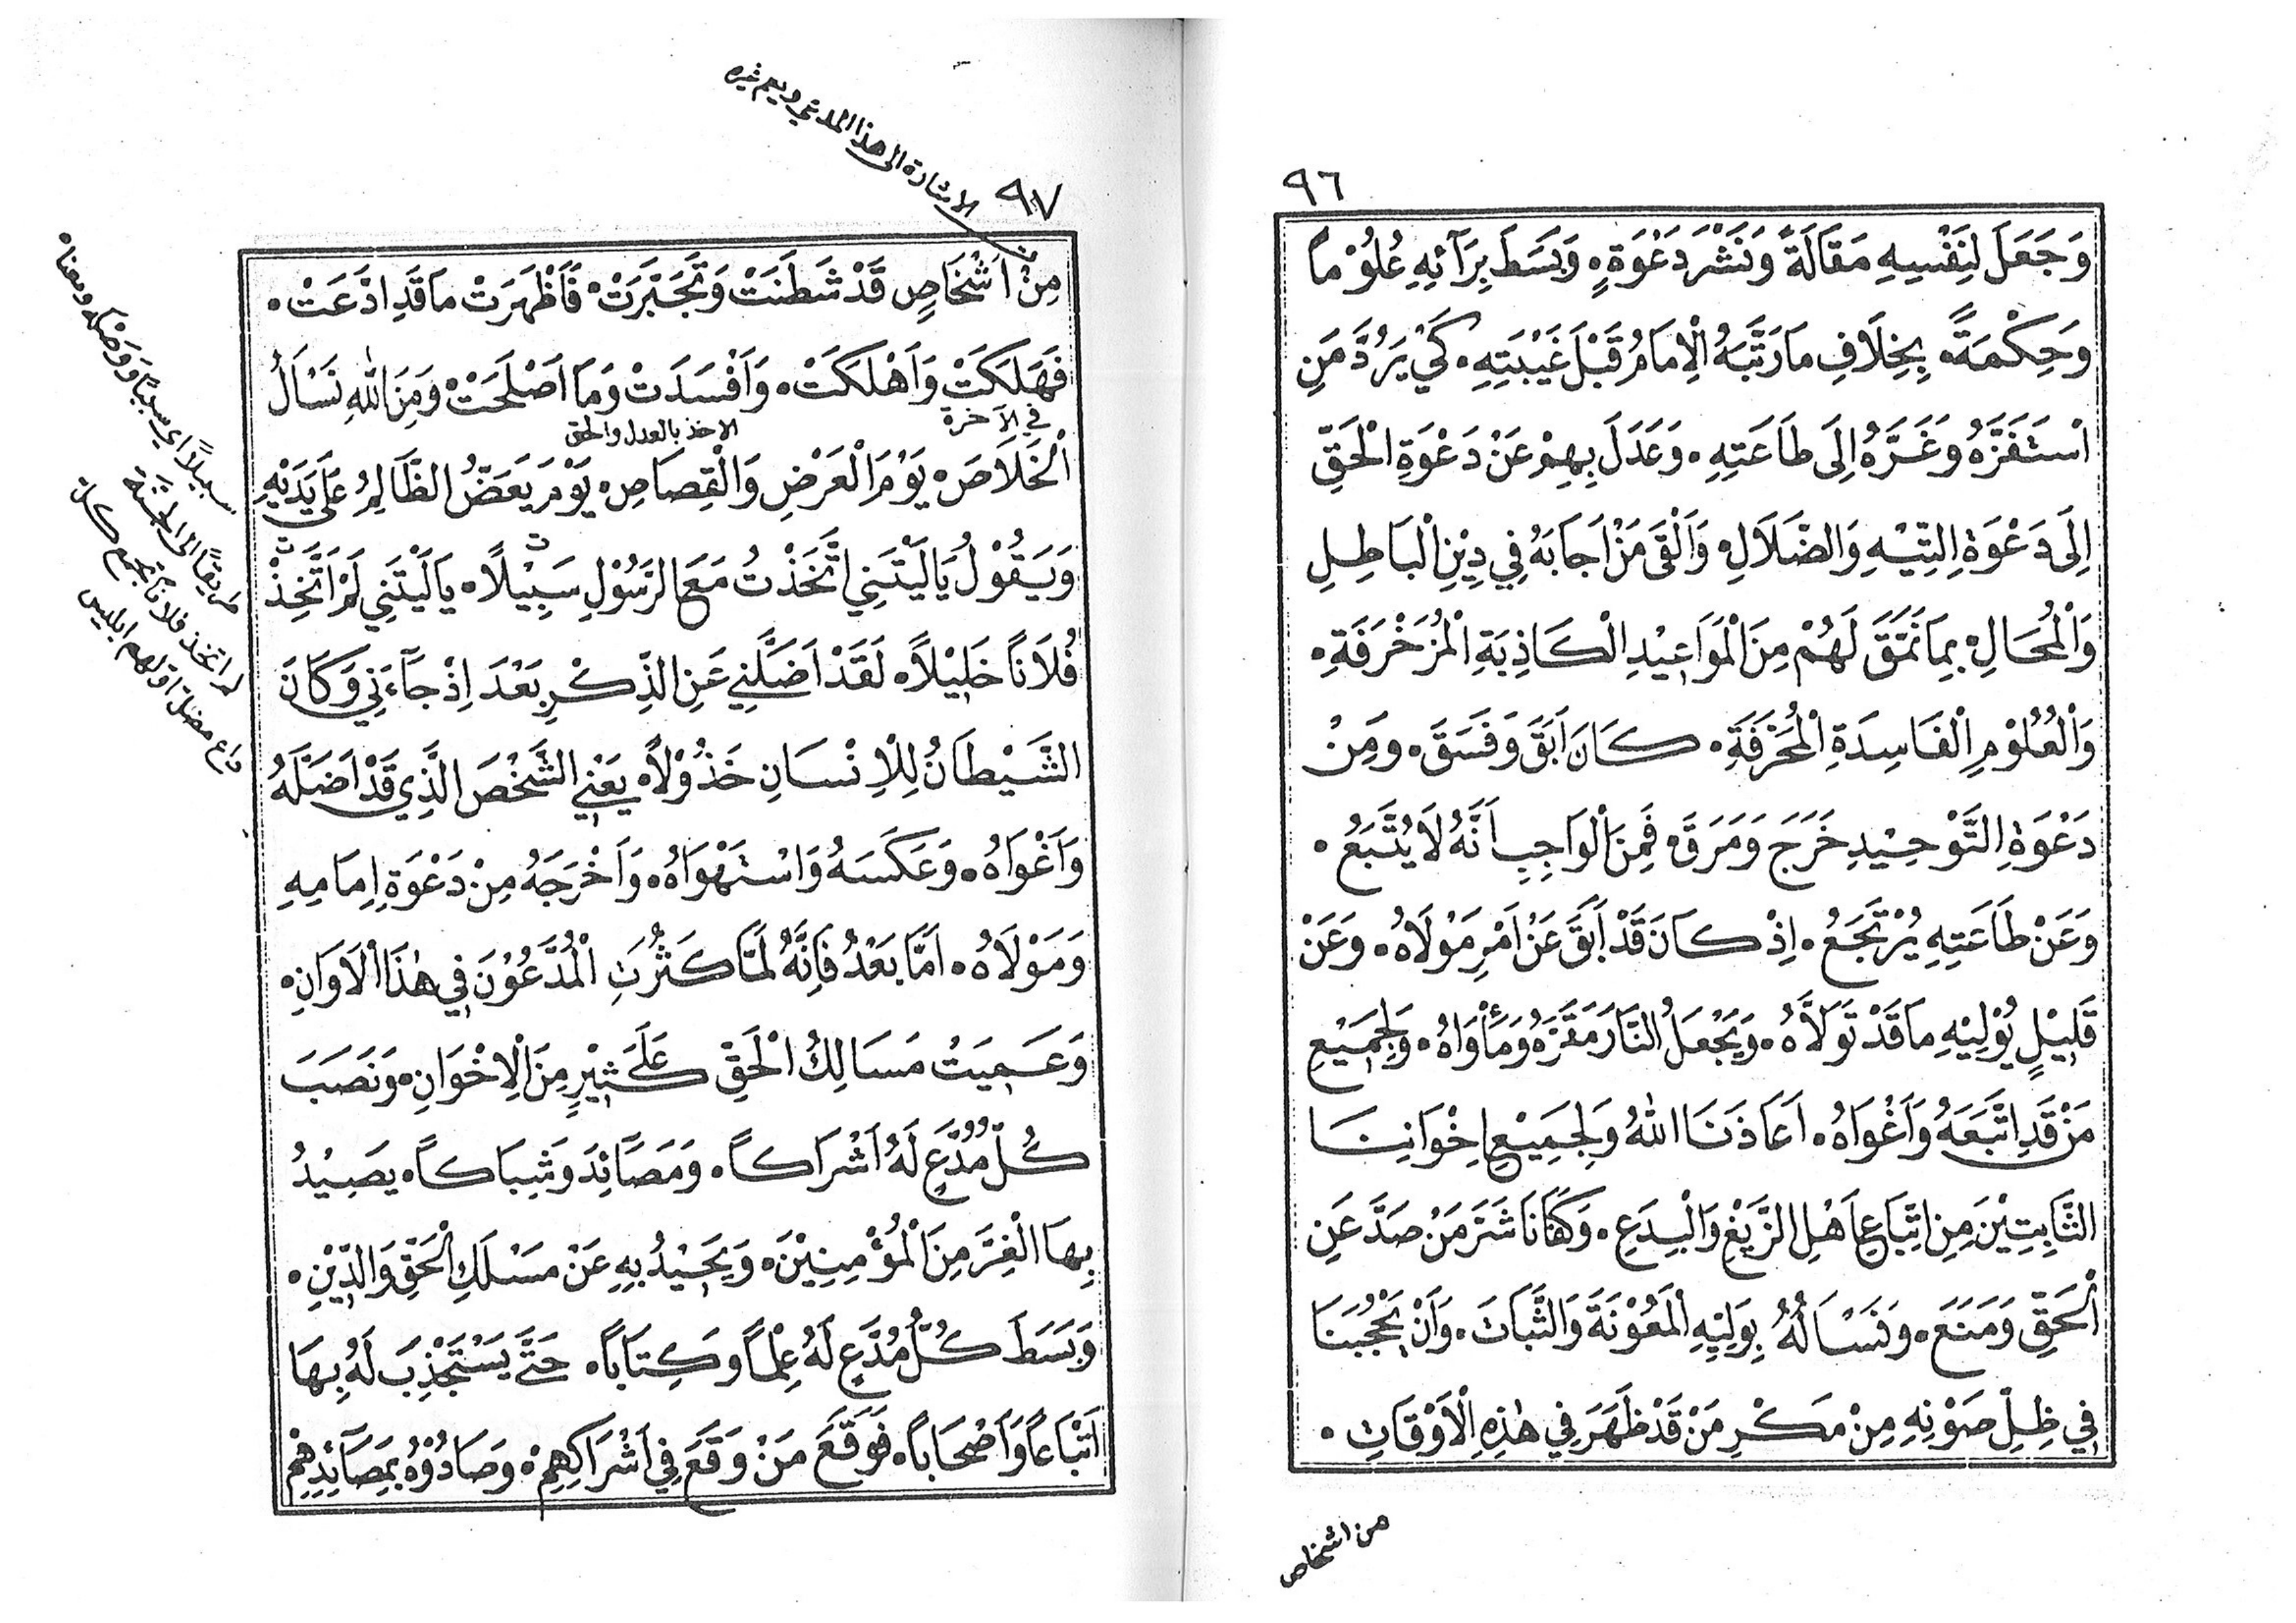 ٩٦
وَجَعَلَ لِنَفْسِهِ مَقَالَةً وَنَشْرَ دَعْوَةٍ • وَبَسَطَ بِرَآئِهِ عُلُوْماً
وَحِكْمَةً • بِخِلَافِ مَا رَتَّبَهُ الْاِمَامُ قَبْلَ غَيْبَتِهِ • كَيْ يَرُدَّ مَنِ
اسْتَفَزَّهُ وَغَرَّهُ اِلَى طَاعَتِهِ • وَعَدَلَ بِهِمْ عَنْ دَعْوَةِ الْحَقِّ
اِلَى دَعْوَةِ التِّيْهِ وَالضَّلَالِ • وَاَلْقَى مَنْ اَجَابَهُ فِي دِيْنِ الْبَاطِلِ
وَالْمُحَالِ • بِمَا نَمَّقَ لَهُمْ مِنَ الْمَوَاعِيْدِ الْكَاذِبَةِ الْمُزَخْرَفَةِ •
وَالْعُلُوْمِ الْفَاسِدَةِ الْمُحَرَّفَةِ • كَانَ اَبَقَ وَفَسَقَ • وَمِنْ
دَعْوَةِ التَّوْحِيْدِ خَرَجَ وَمَرَقَ • فَمِنَ الْوَاجِبِ اَنَّهُ لَا يُتَّبَعُ •
وَعَنْ طَاعَتِهِ يُرْتَجَعُ • اِذْ كَانَ قَدْ اَبَقَ عَنْ اَمْرِ مَوْلَاهُ • وَعَنْ
قَلِيْلٍ يُوْلِيْهِ مَا قَدْ تَوَلَّاهُ • وَيَجْعَلُ النَّارَ مَقَرَّهُ وَمَأْوَاهُ • وَلِجَمِيْعِ
مَنْ قَدِ اتَّبَعَهُ وَاَغْوَاهُ • اَعَاذَنَا اللهُ وَلِجَمِيْعِ اِخْوَانِنَا
الثَّابِتِيْنَ مِنِ اتِّبَاعِ اَهْلِ الزَّيْغِ وَالْبِدَعِ • وَكَفَانَا شَرَّ مَنْ صَدَّ عَنِ
الْحَقِّ وَمَنَعَ • وَنَسْأَلُهُ بِوَلِيِّهِ الْمَعُوْنَةَ وَالثَّبَاتَ • وَاَنْ يَحْجُبَنَا
فِي ظِلِّ صَوْنِهِ مِنْ مَكْرِ مَنْ قَدْ ظَهَرَ فِي هٰذِهِ الْاَوْقَاتِ •
من اشخاص
٩٧
الاشارة الى هذا المدعي ويعم غيره
مِنْ اَشْخَاصٍ قَدْ شَطَنَتْ وَتَجَبَّرَتْ • فَاَظْهَرَتْ مَا قَدِ ادَّعَتْ •
فَهَلَكَتْ وَاَهْلَكَتْ • وَاَفْسَدَتْ وَمَا اَصْلَحَتْ • وَمِنَ اللهِ نَسْاَلُ
في الآخرة
الاخذ بالعدل والحق
الْخَلَاصَ • يَوْمَ الْعَرْضِ وَالْقِصَاصِ • يَوْمَ يَعَضُّ الظَّالِمُ عَلَى يَدَيْهِ
وَيَقُوْلُ يَا لَيْتَنِي اتَّخَذْتُ مَعَ الرَّسُوْلِ سَبِيْلًا • يَا لَيْتَنِي لَمْ اَتَّخِذْ
فُلَاناً خَلِيْلاً • لَقَدْ اَضَلَّنِي عَنِ الذِّكْرِ بَعْدَ اِذْ جَآءَنِي وَكَانَ
الشَّيْطَانُ لِلْاِنْسَانِ خَذُوْلاً • يَعْنِي الشَّخْصَ الَّذِي قَدْ اَضَلَّهُ
وَاَغْوَاهُ • وَعَكَسَهُ وَاسْتَهْوَاهُ • وَاَخْرَجَهُ مِنْ دَعْوَةِ اِمَامِهِ
وَمَوْلَاهُ • اَمَّا بَعْدُ فَاِنَّهُ لَمَّا كَثُرَتِ الْمُدَّعُوْنَ فِي هٰذَا الْاَوَانِ •
وَعَمِيَتْ مَسَالِكُ الْحَقِّ عَلَى كَثِيْرٍ مِنَ الْاِخْوَانِ • وَنَصَبَ
كُلُّ مُدَّعٍ لَهُ اَشْرَاكاً • وَمَصَائِدَ وَشِبَاكاً • يَصِيْدُ
بِهَا الْغِرَّ مِنَ الْمُؤْمِنِيْنَ • وَيَحِيْدُ بِهِ عَنْ مَسْلَكِ الْحَقِّ وَالدِّيْنِ •
وَبَسَطَ كُلُّ مُدَّعٍ لَهُ عِلْماً وَكِتَاباً • حَتَّى يَسْتَجْذِبَ لَهُ بِهَا
اَتْبَاعاً وَاَصْحَاباً • فَوَقَعَ مَنْ وَقَعَ فِي اَشْرَاكِهِمْ • وَصَادُوْهُ بِمَصَآئِدِهِمْ
سبيلاً اي سبباً ووصْلة ومعناه
طريقاً الى الجنة
لم اتخذ فلاناً تجمع كل
داع مضل اولهم ابليس